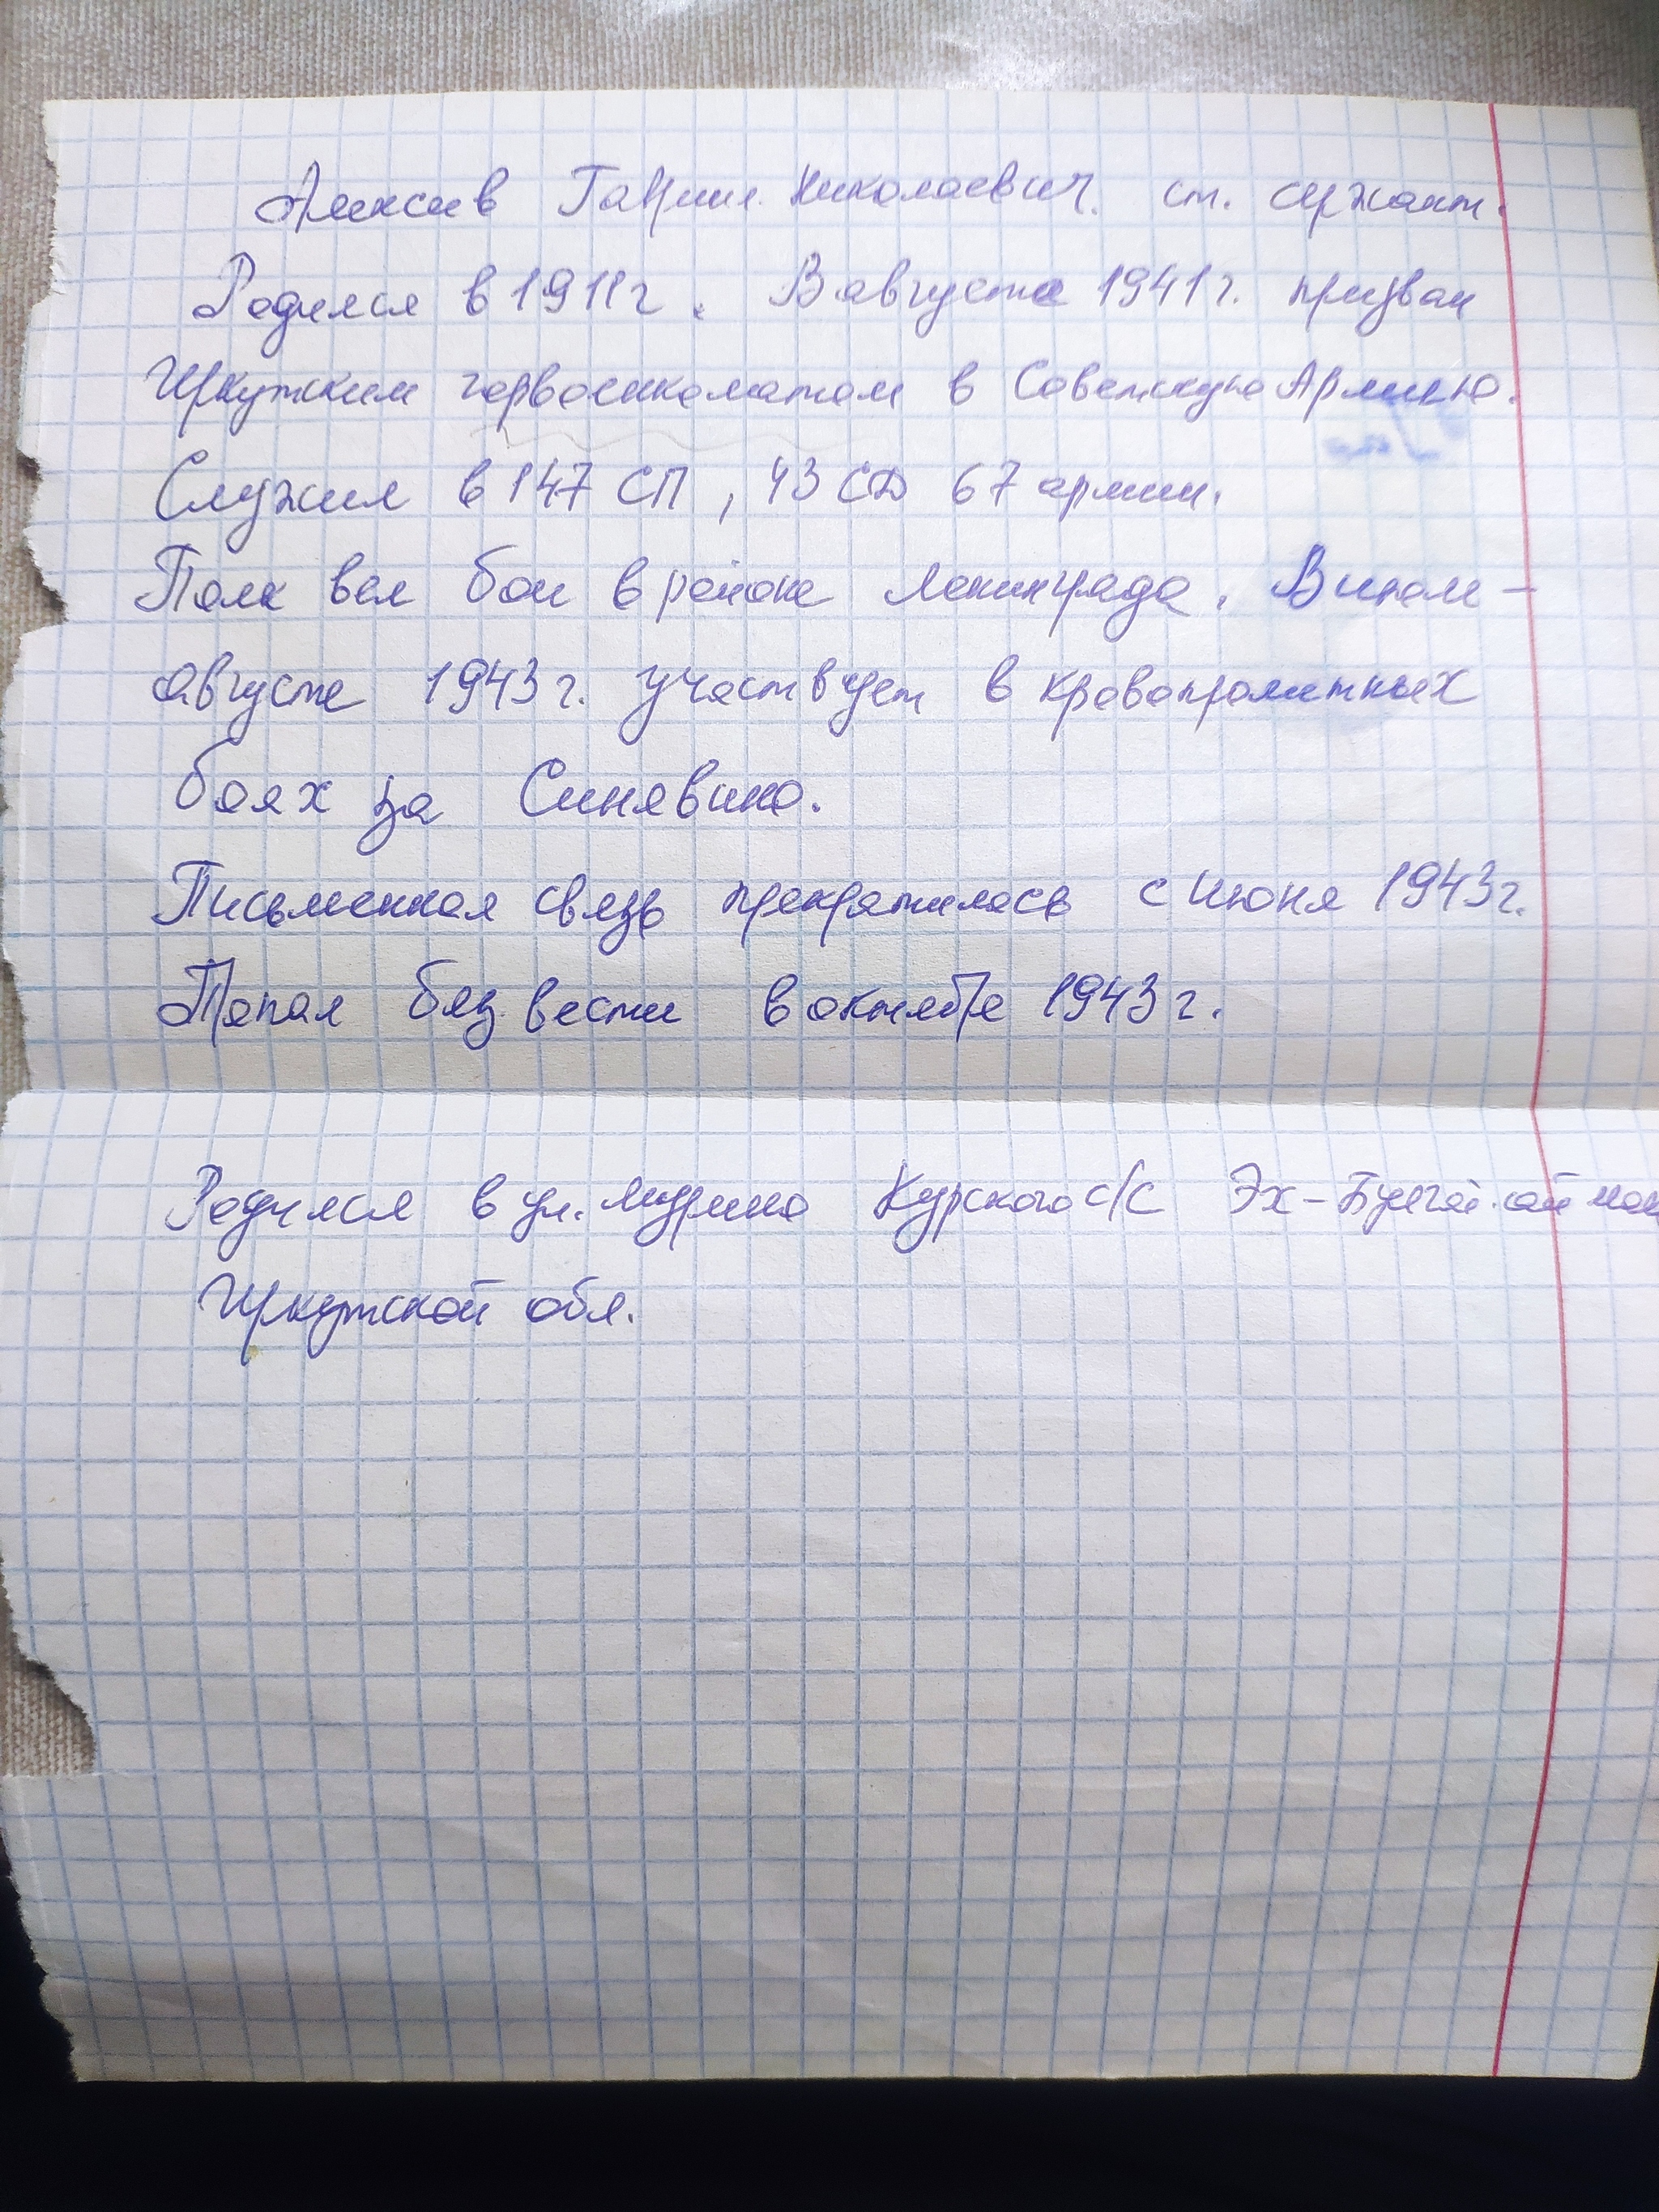 Алексеев Гаврил. Николаевич. ст. сержант.
Родился в 1911г. В августе 1941г. призван
Иркутским горвоенкоматом в Советскую Армию.
Служил в 147 СП, 43 СД 67 армии.
Полк вел бои в районе Ленинграда. В июле-
августе 1943г. участвует в кровопролитных
боях за Синявино.
Письменная связь прекратилась с июня 1943г.
Пропал без вести в октябре 1943г.
Родился в ул. Мурино Курского с/с Эх-Булгат.
Иркутской обл.